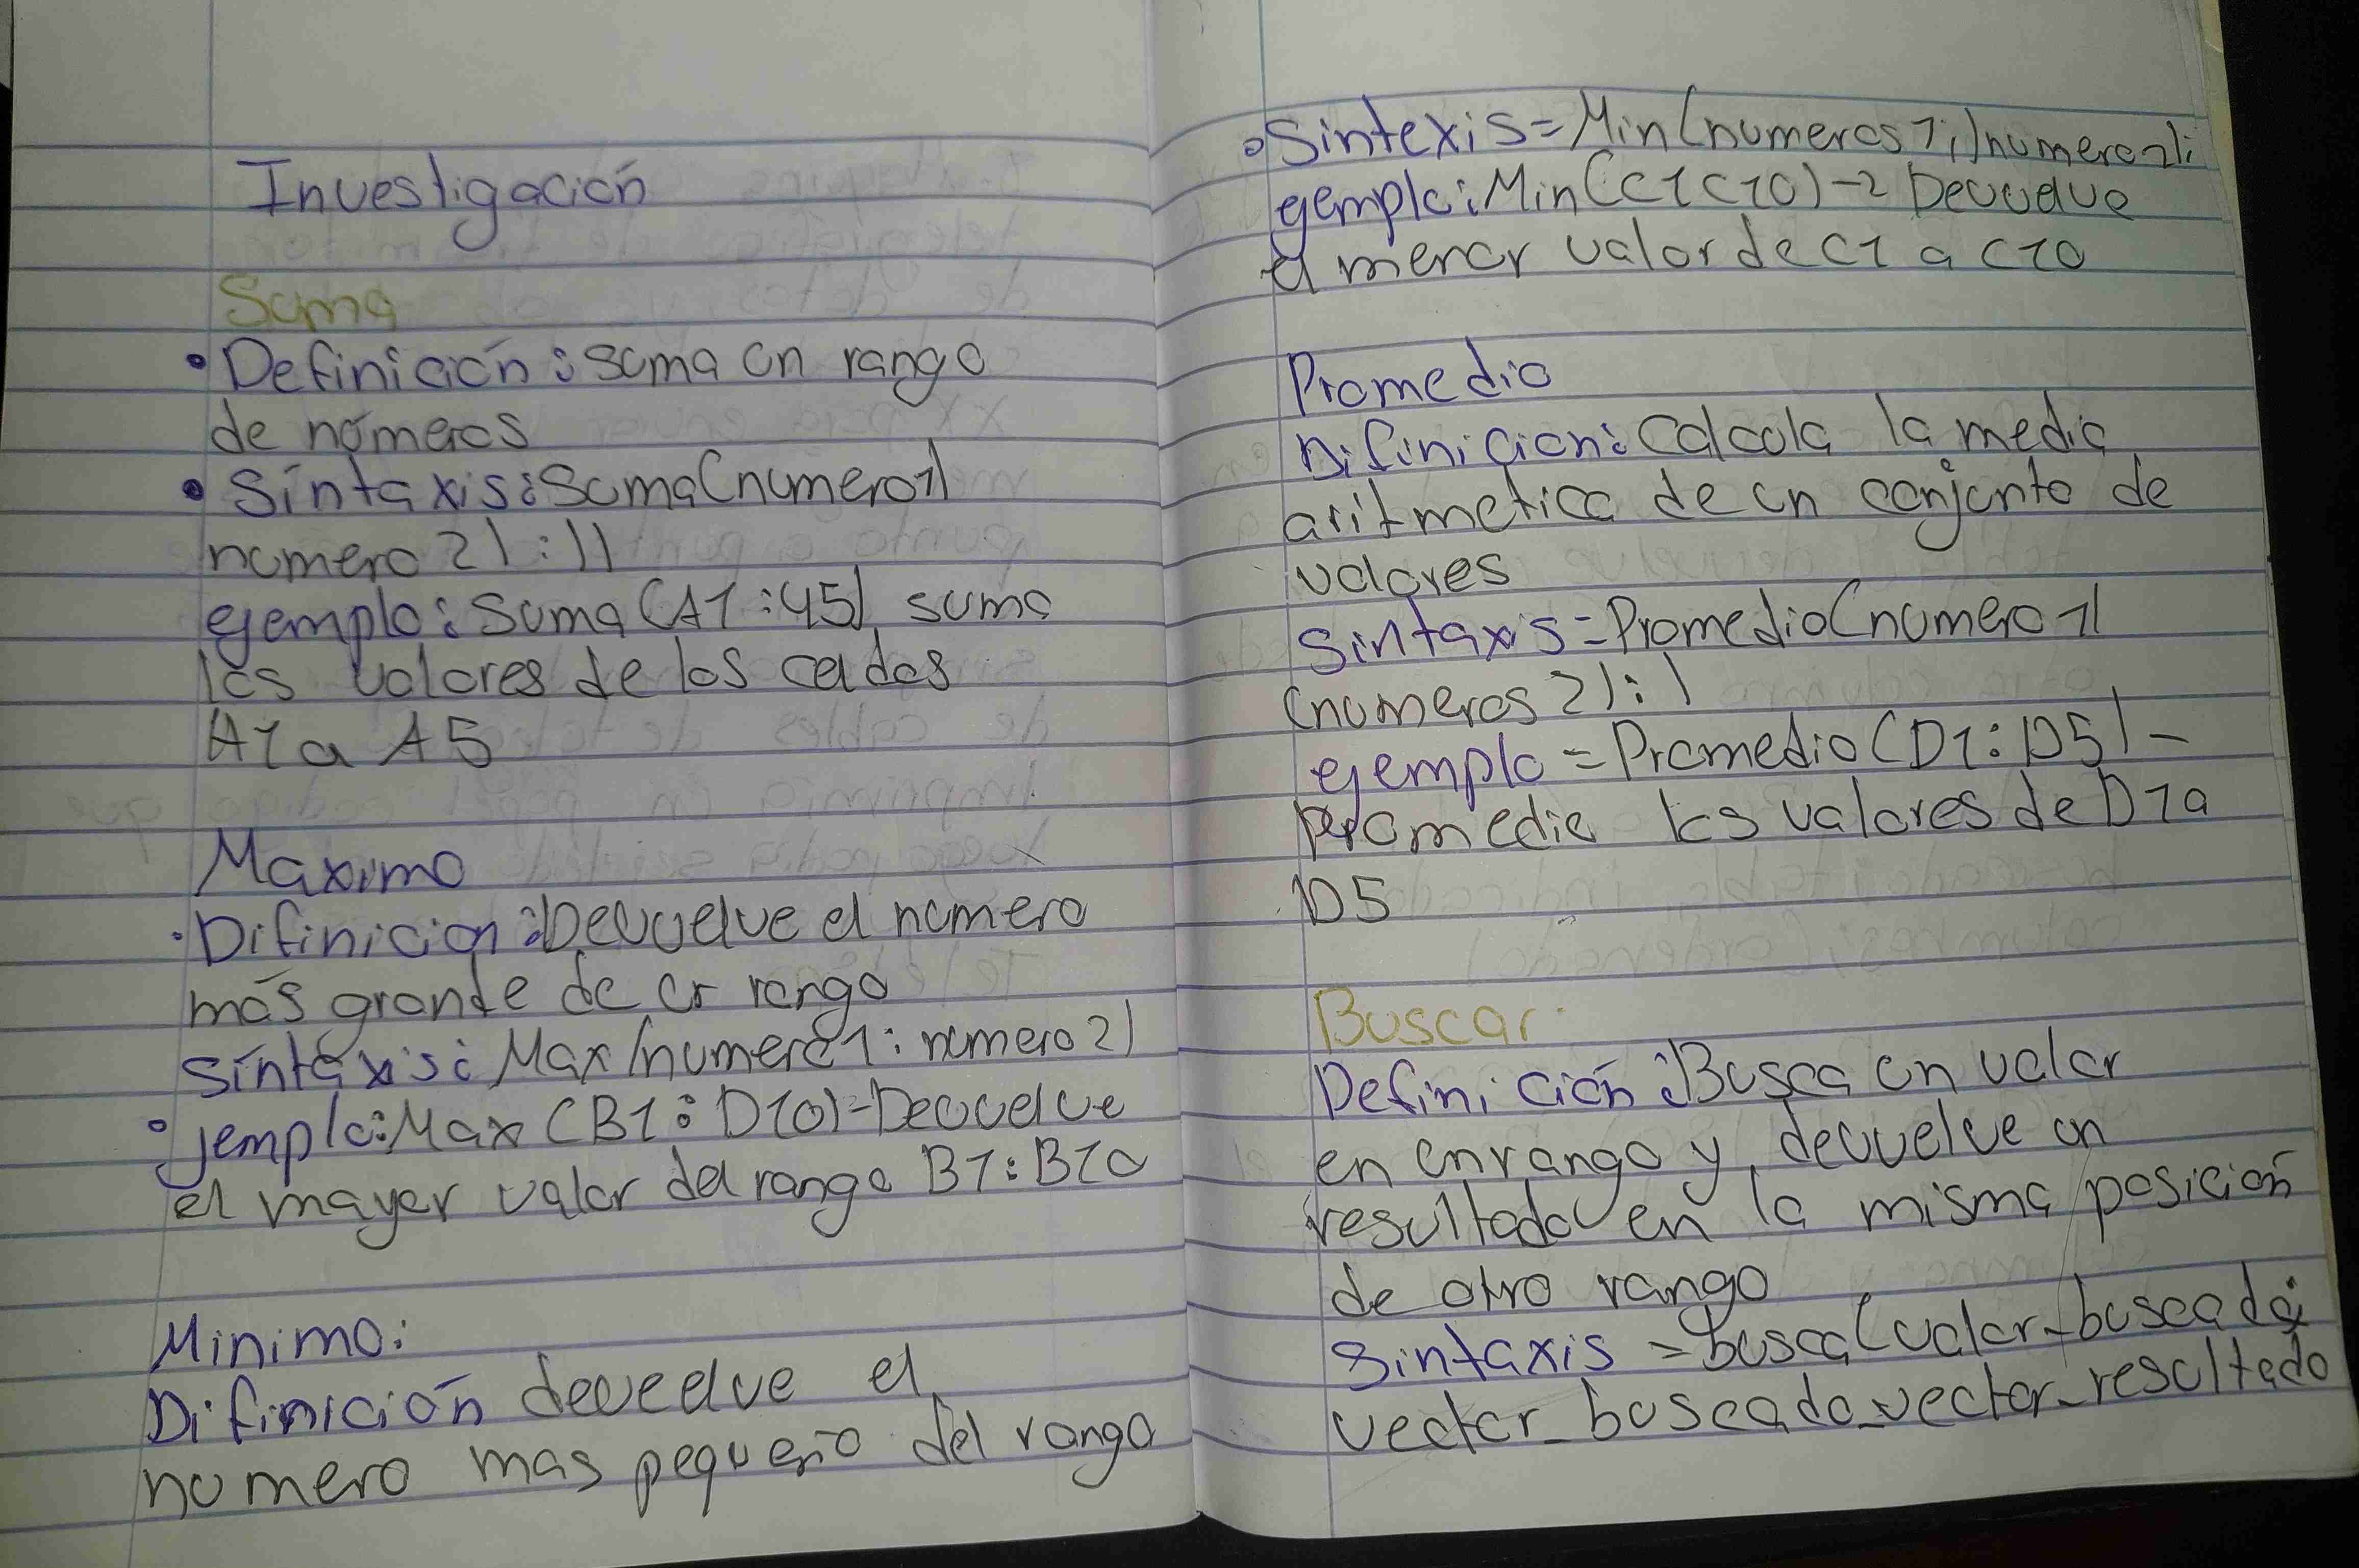 Investigación
Suma
• Definición: suma un rango
de números
• Síntaxis: Suma(numero1)
numero 2) : ))
ejemplo: Suma (A1:45) suma
los valores de los celdas
A1 a A5
Maximo
• Difinicion: Devuelve el numero
más grande de un rango
Síntaxis: Max(numero1: numero 2)
• jemplo: Max (B1: D10)-Devuelve
el mayor valor del rango B1:B10
Minimo:
Difinición devuelve el
numero mas pequeño del rango
• Sintexis=Min(numeros1;)numero2);
ejemplo: Min(C1C10)-2 Devuelve
el menor valor de C1 a C10
Promedio
Difinición: Calcula la media
aritmetica de un conjunto de
valores
Sintaxis=Promedio(numero1)
(numeros 2):)
ejemplo =Promedio (D1: D5)-
Promedie los valores de D1 a
D5
Buscar
Definición: Busca un valor
en un rango y, devuelve un
resultado en la misma posición
de otro rango
Sintaxis =busca(valor-buscado;
vector_buscado_vector_resultado